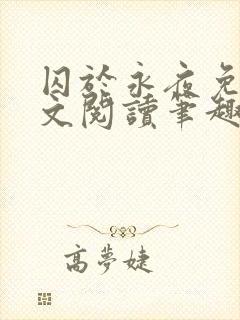 囚於永夜免
文閱讀筆趣
高夢婕